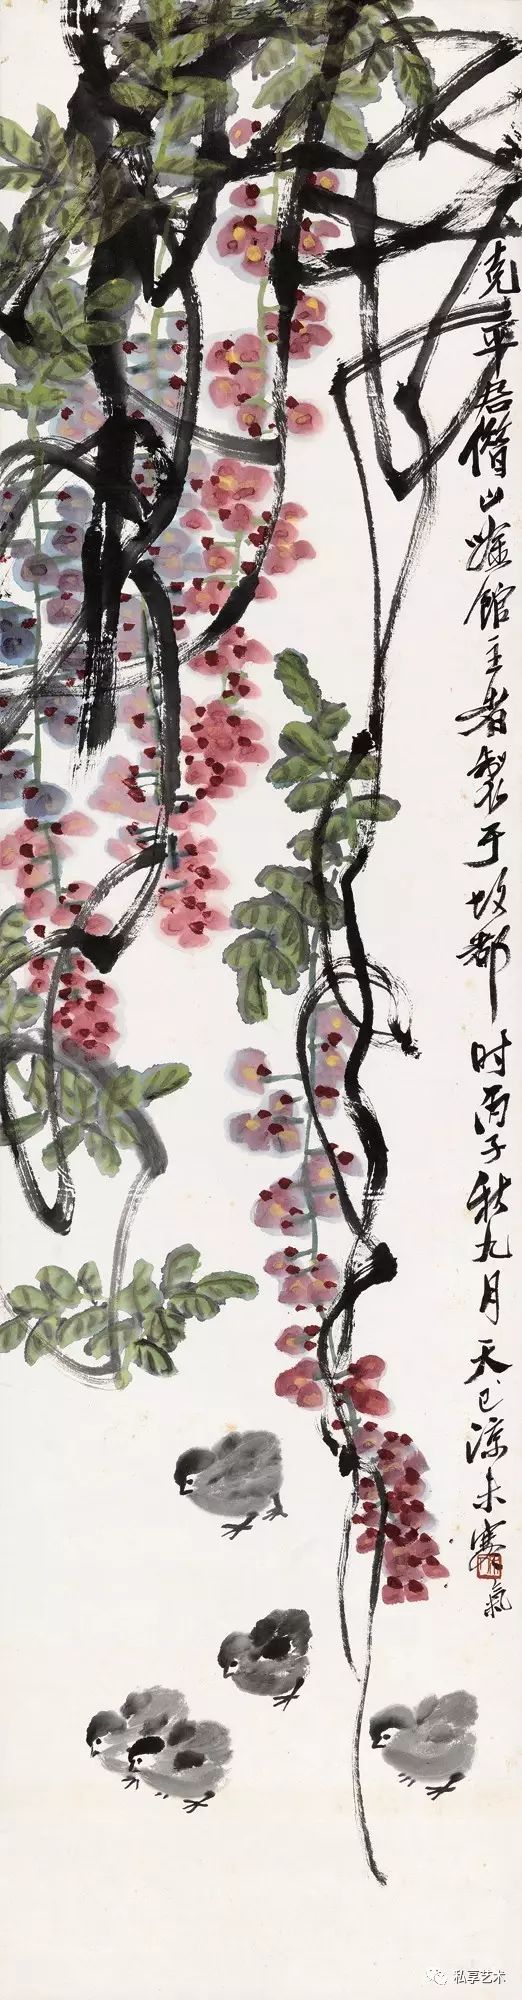 克平君借山馆主者制于故都时丙子秋九月天已凉未寒气
私享艺术